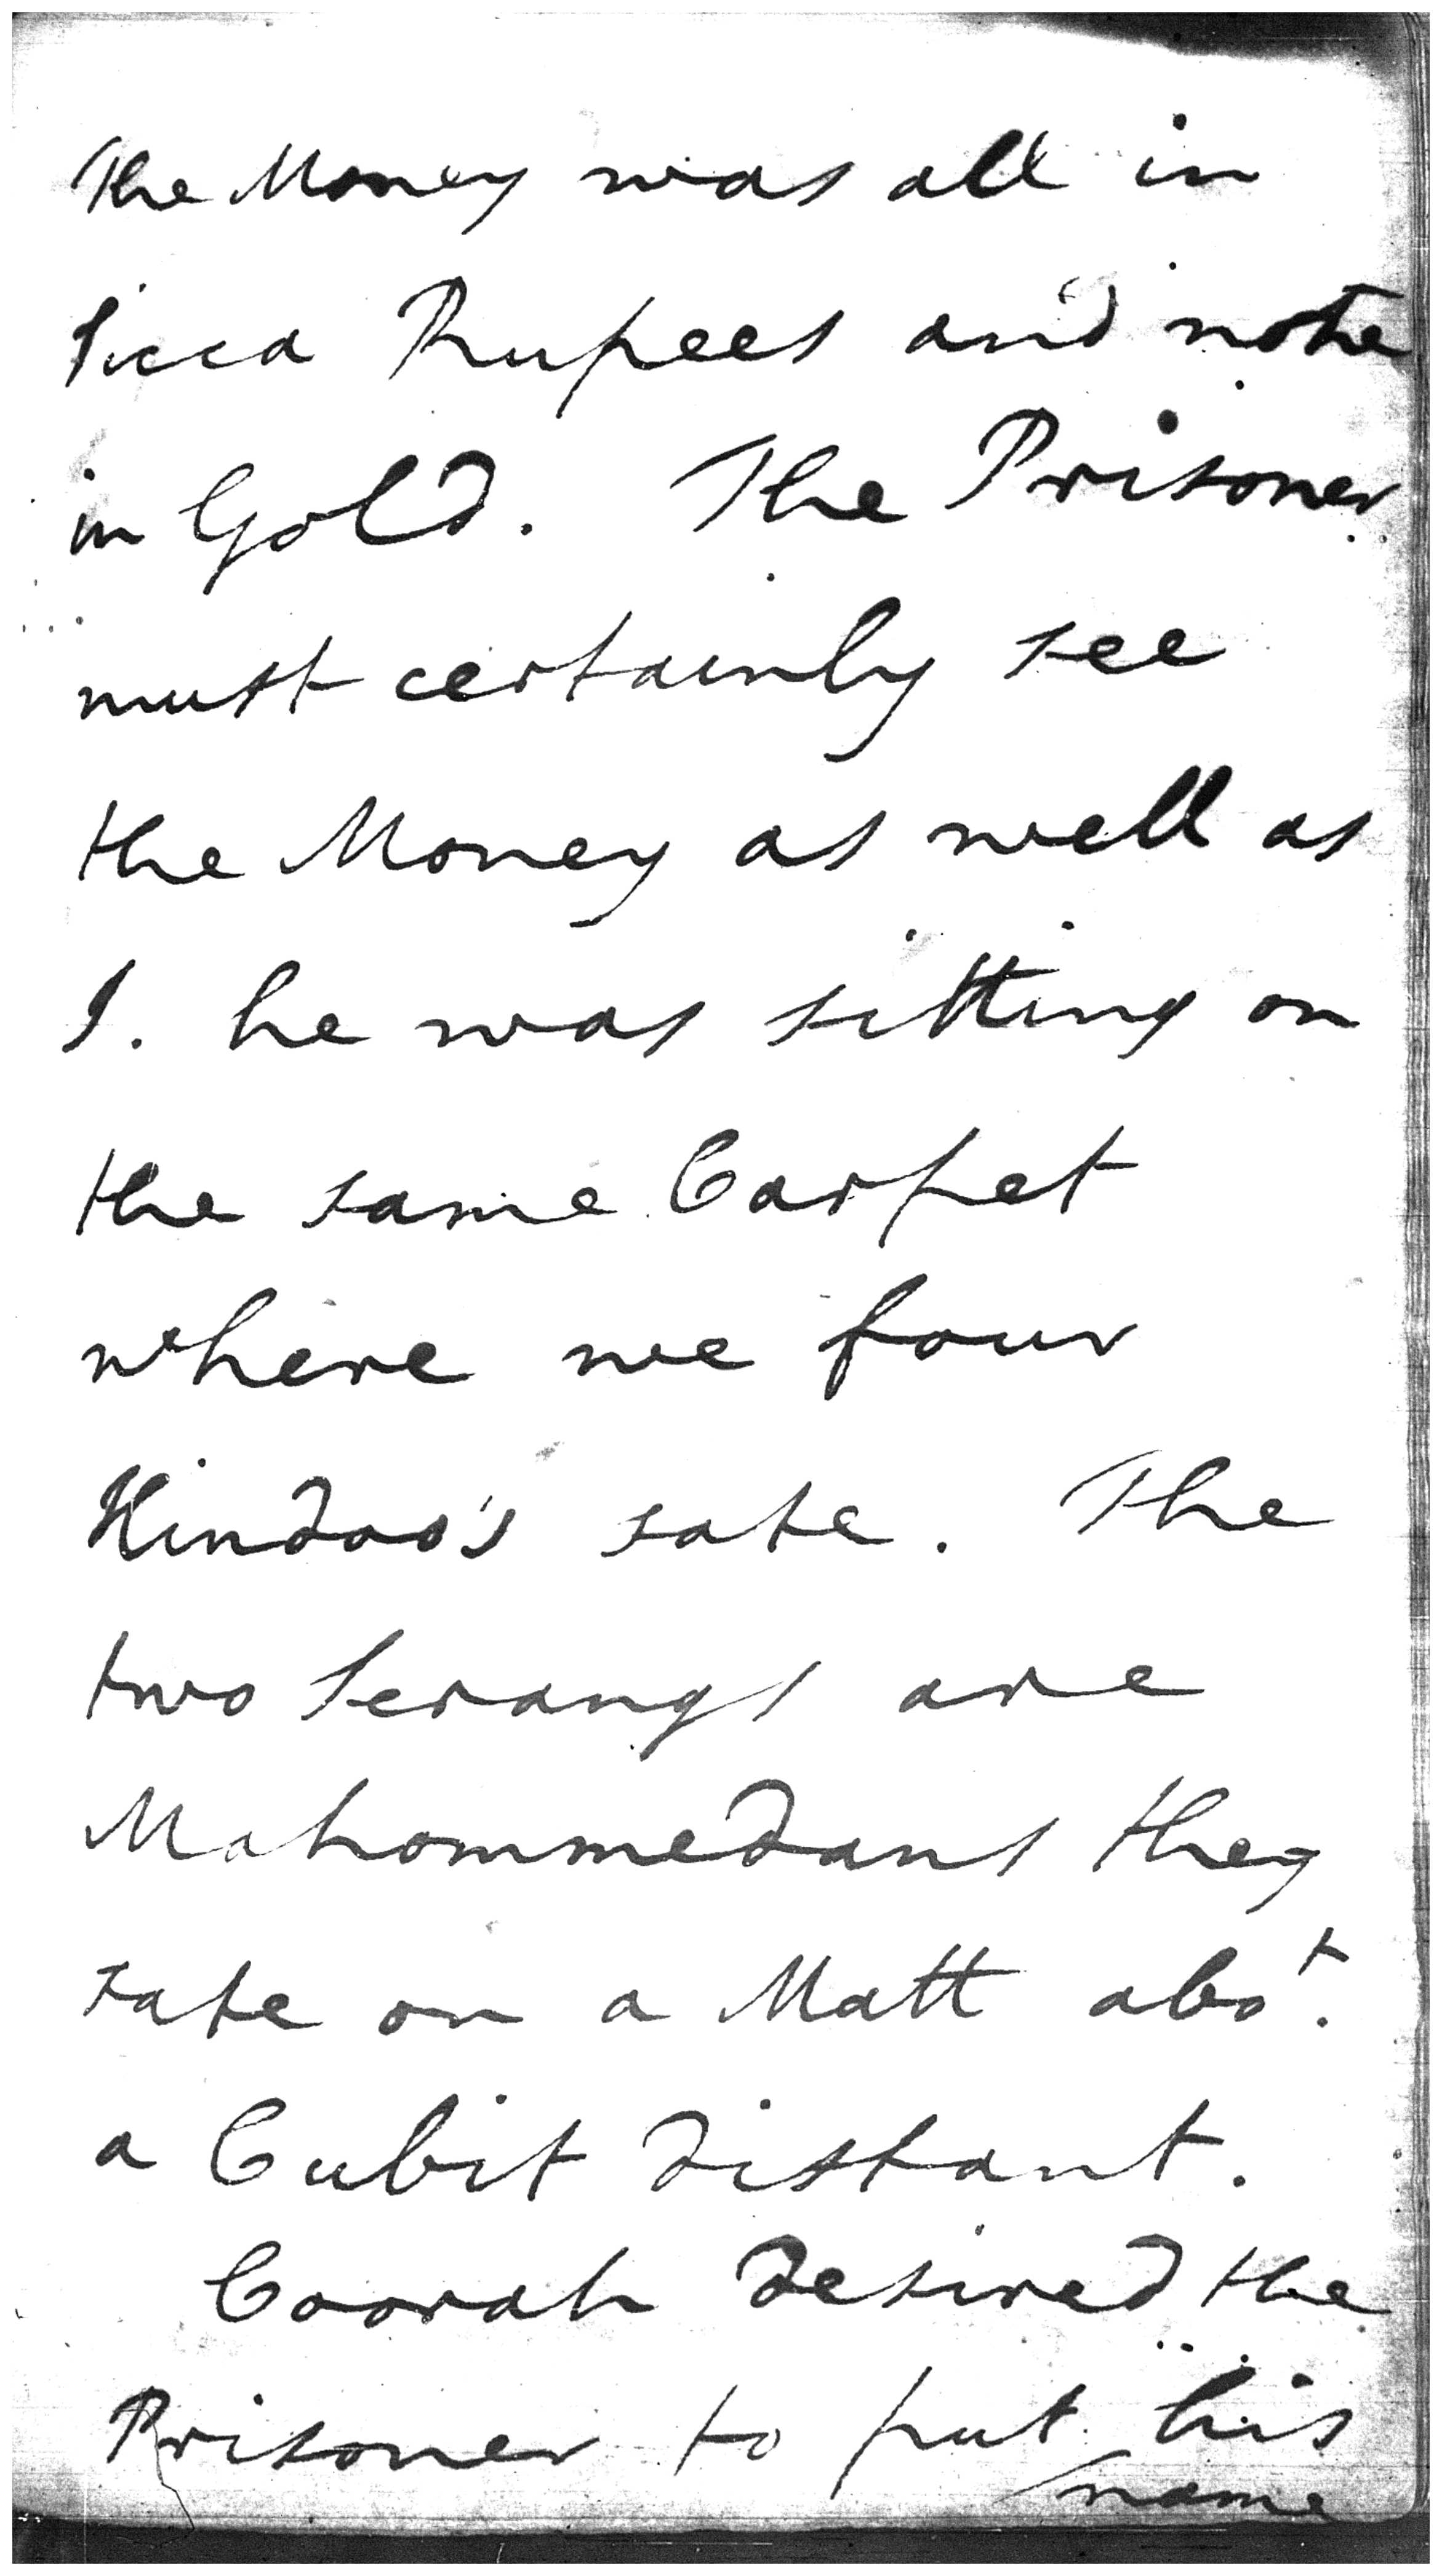 The Money was all in
Sicca Rupees and note
in Gold. The Prisoner
must certainly see
the Money as well as
I. he was sitting on
the same Carpet
where we four
Hindoo's sate. The
two Serangs are
Mahommedans they
sate on a Matt abot.
a Cubit distant.
Coorah desired the
Prisoner to put his
name